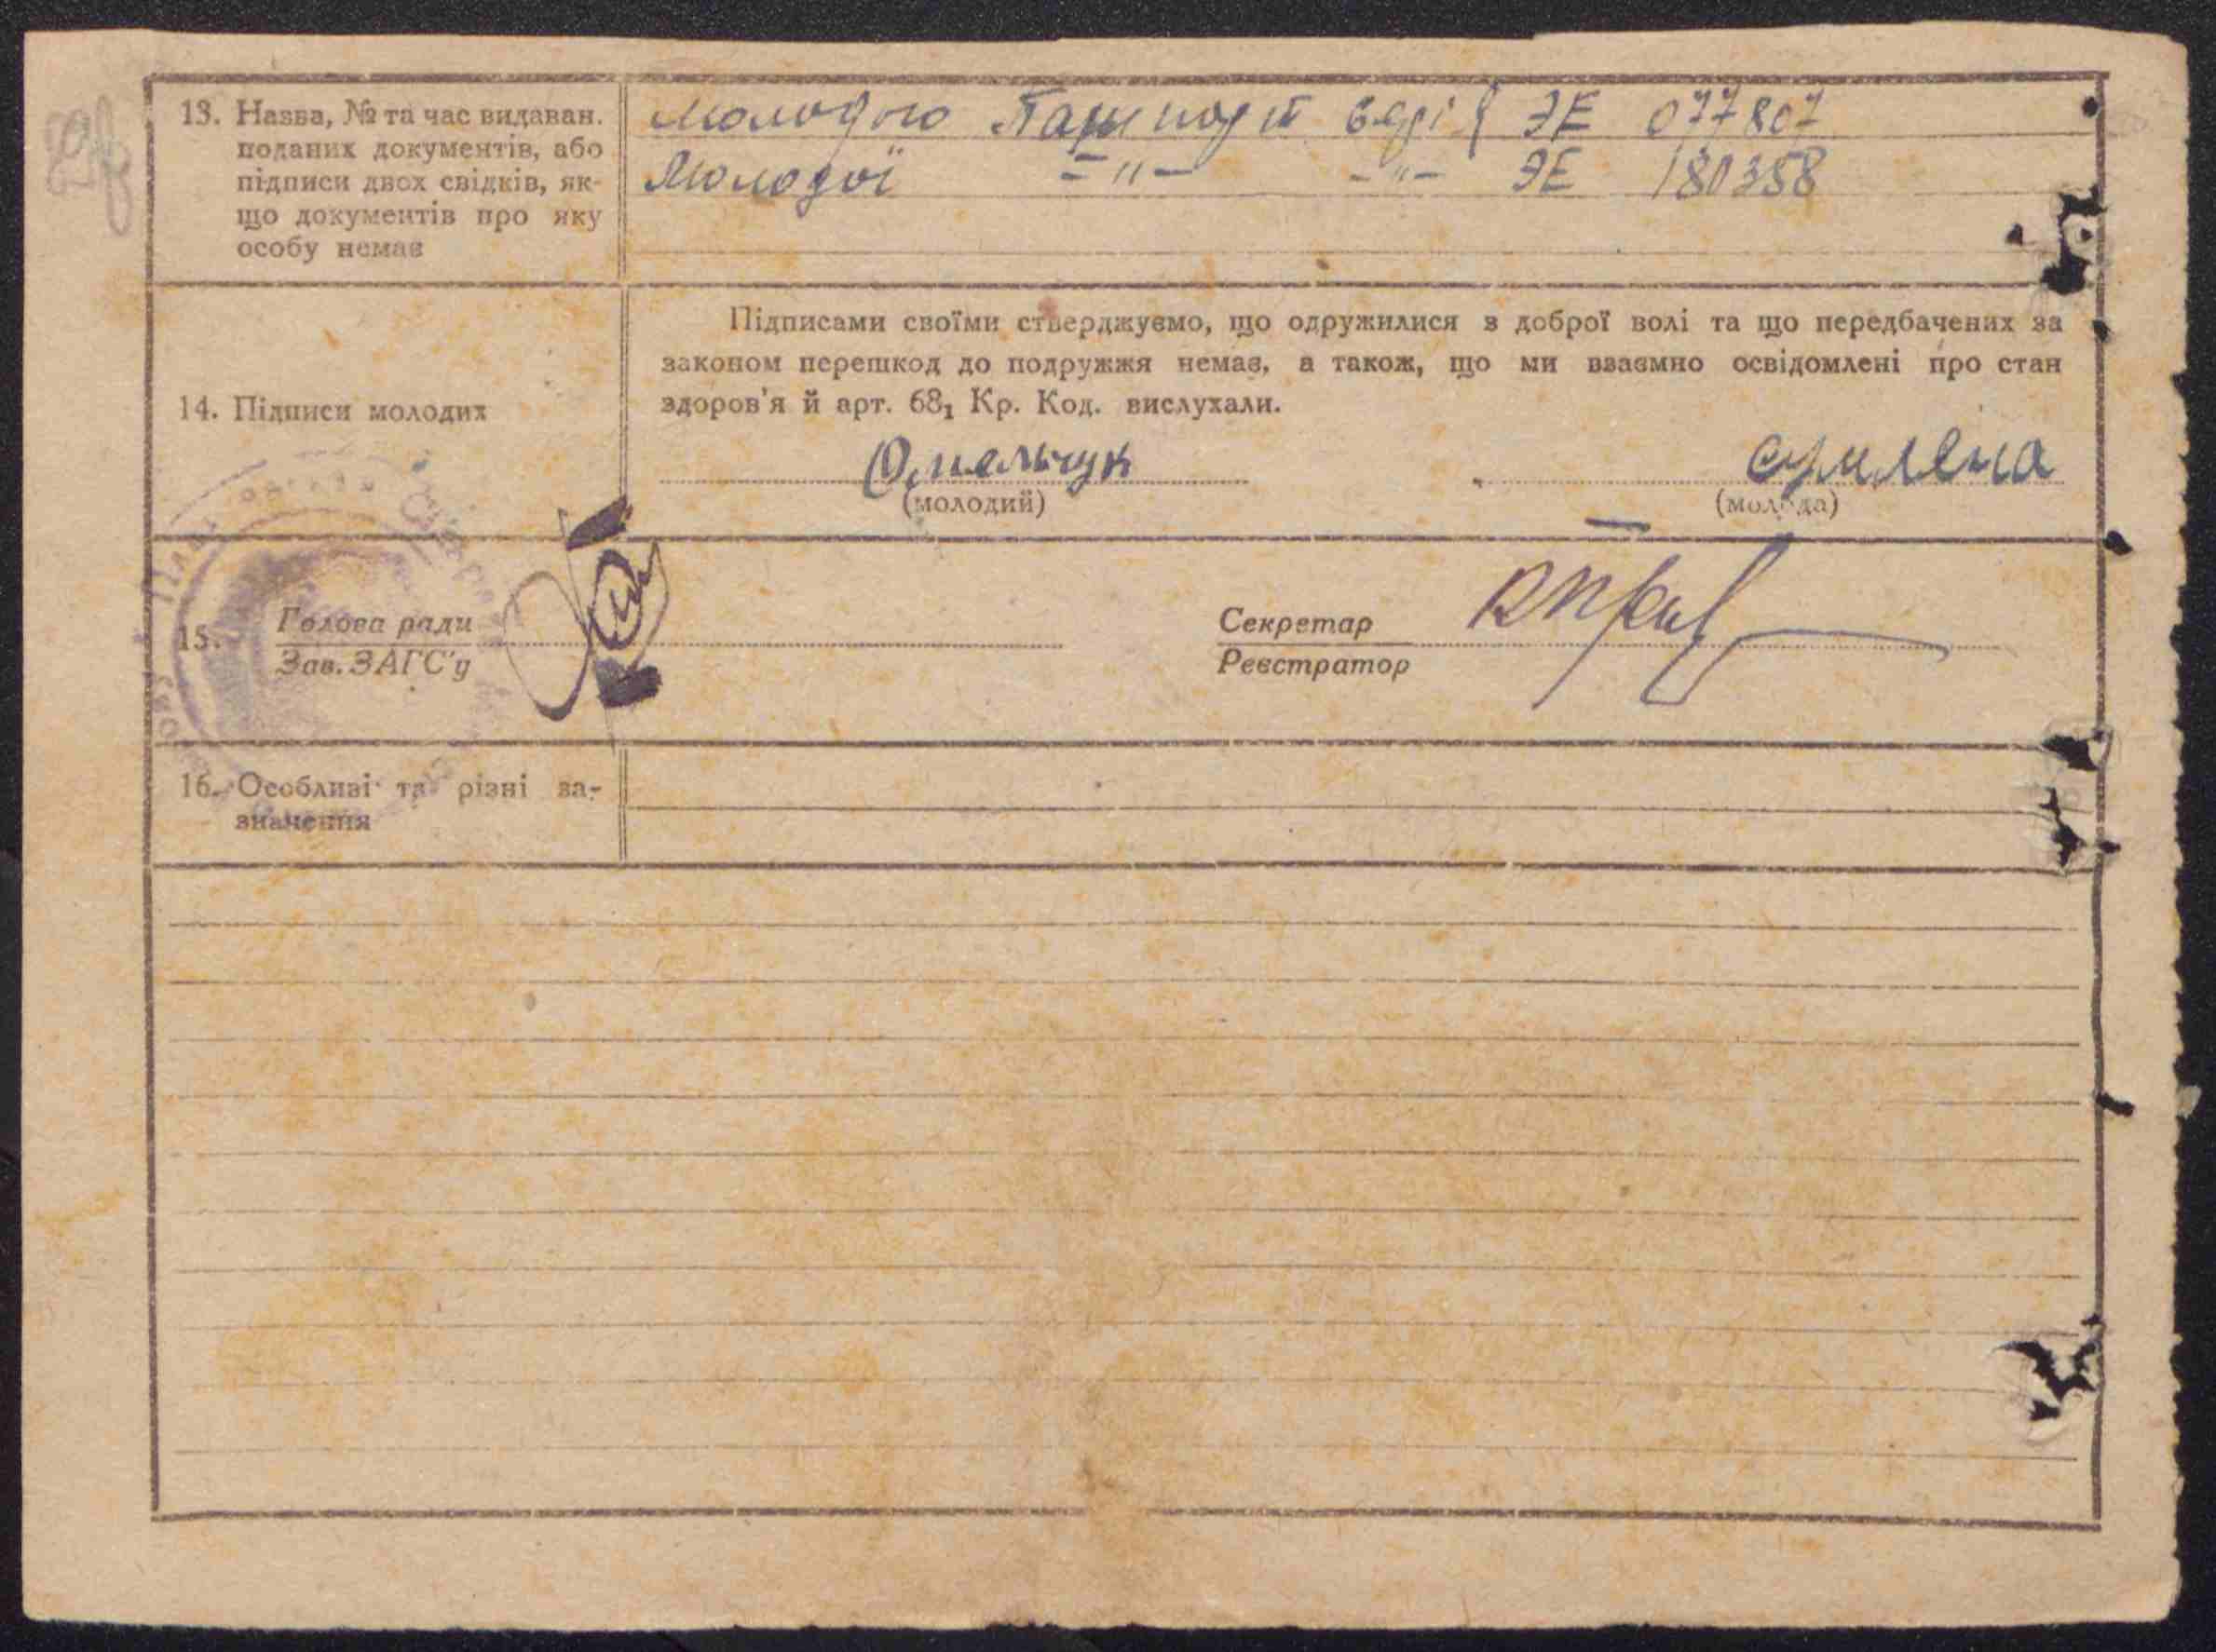 13. Назва, № та час видаван.
поданих документів, або
підписи двох свідків, як-
що документів про яку
особу немає
Молодого Пашпорт серії ЭЕ 077807
Молодої -„- -„- ЭЕ 180358
14. Підписи молодих
Підписами своїми стверджуємо, що одружилися з доброї волі та що передбачених за
законом перешкод до подружжя немає, а також, що ми взаємно освідомлені про стан
здоров'я й арт. 68₁ Кр. Код. вислухали.
Омельчук
(молодий)
(молода)
15. Голова ради
Зав. ЗАГС'у
Секретар
Реєстратор
16. Особливі та різні за-
значення